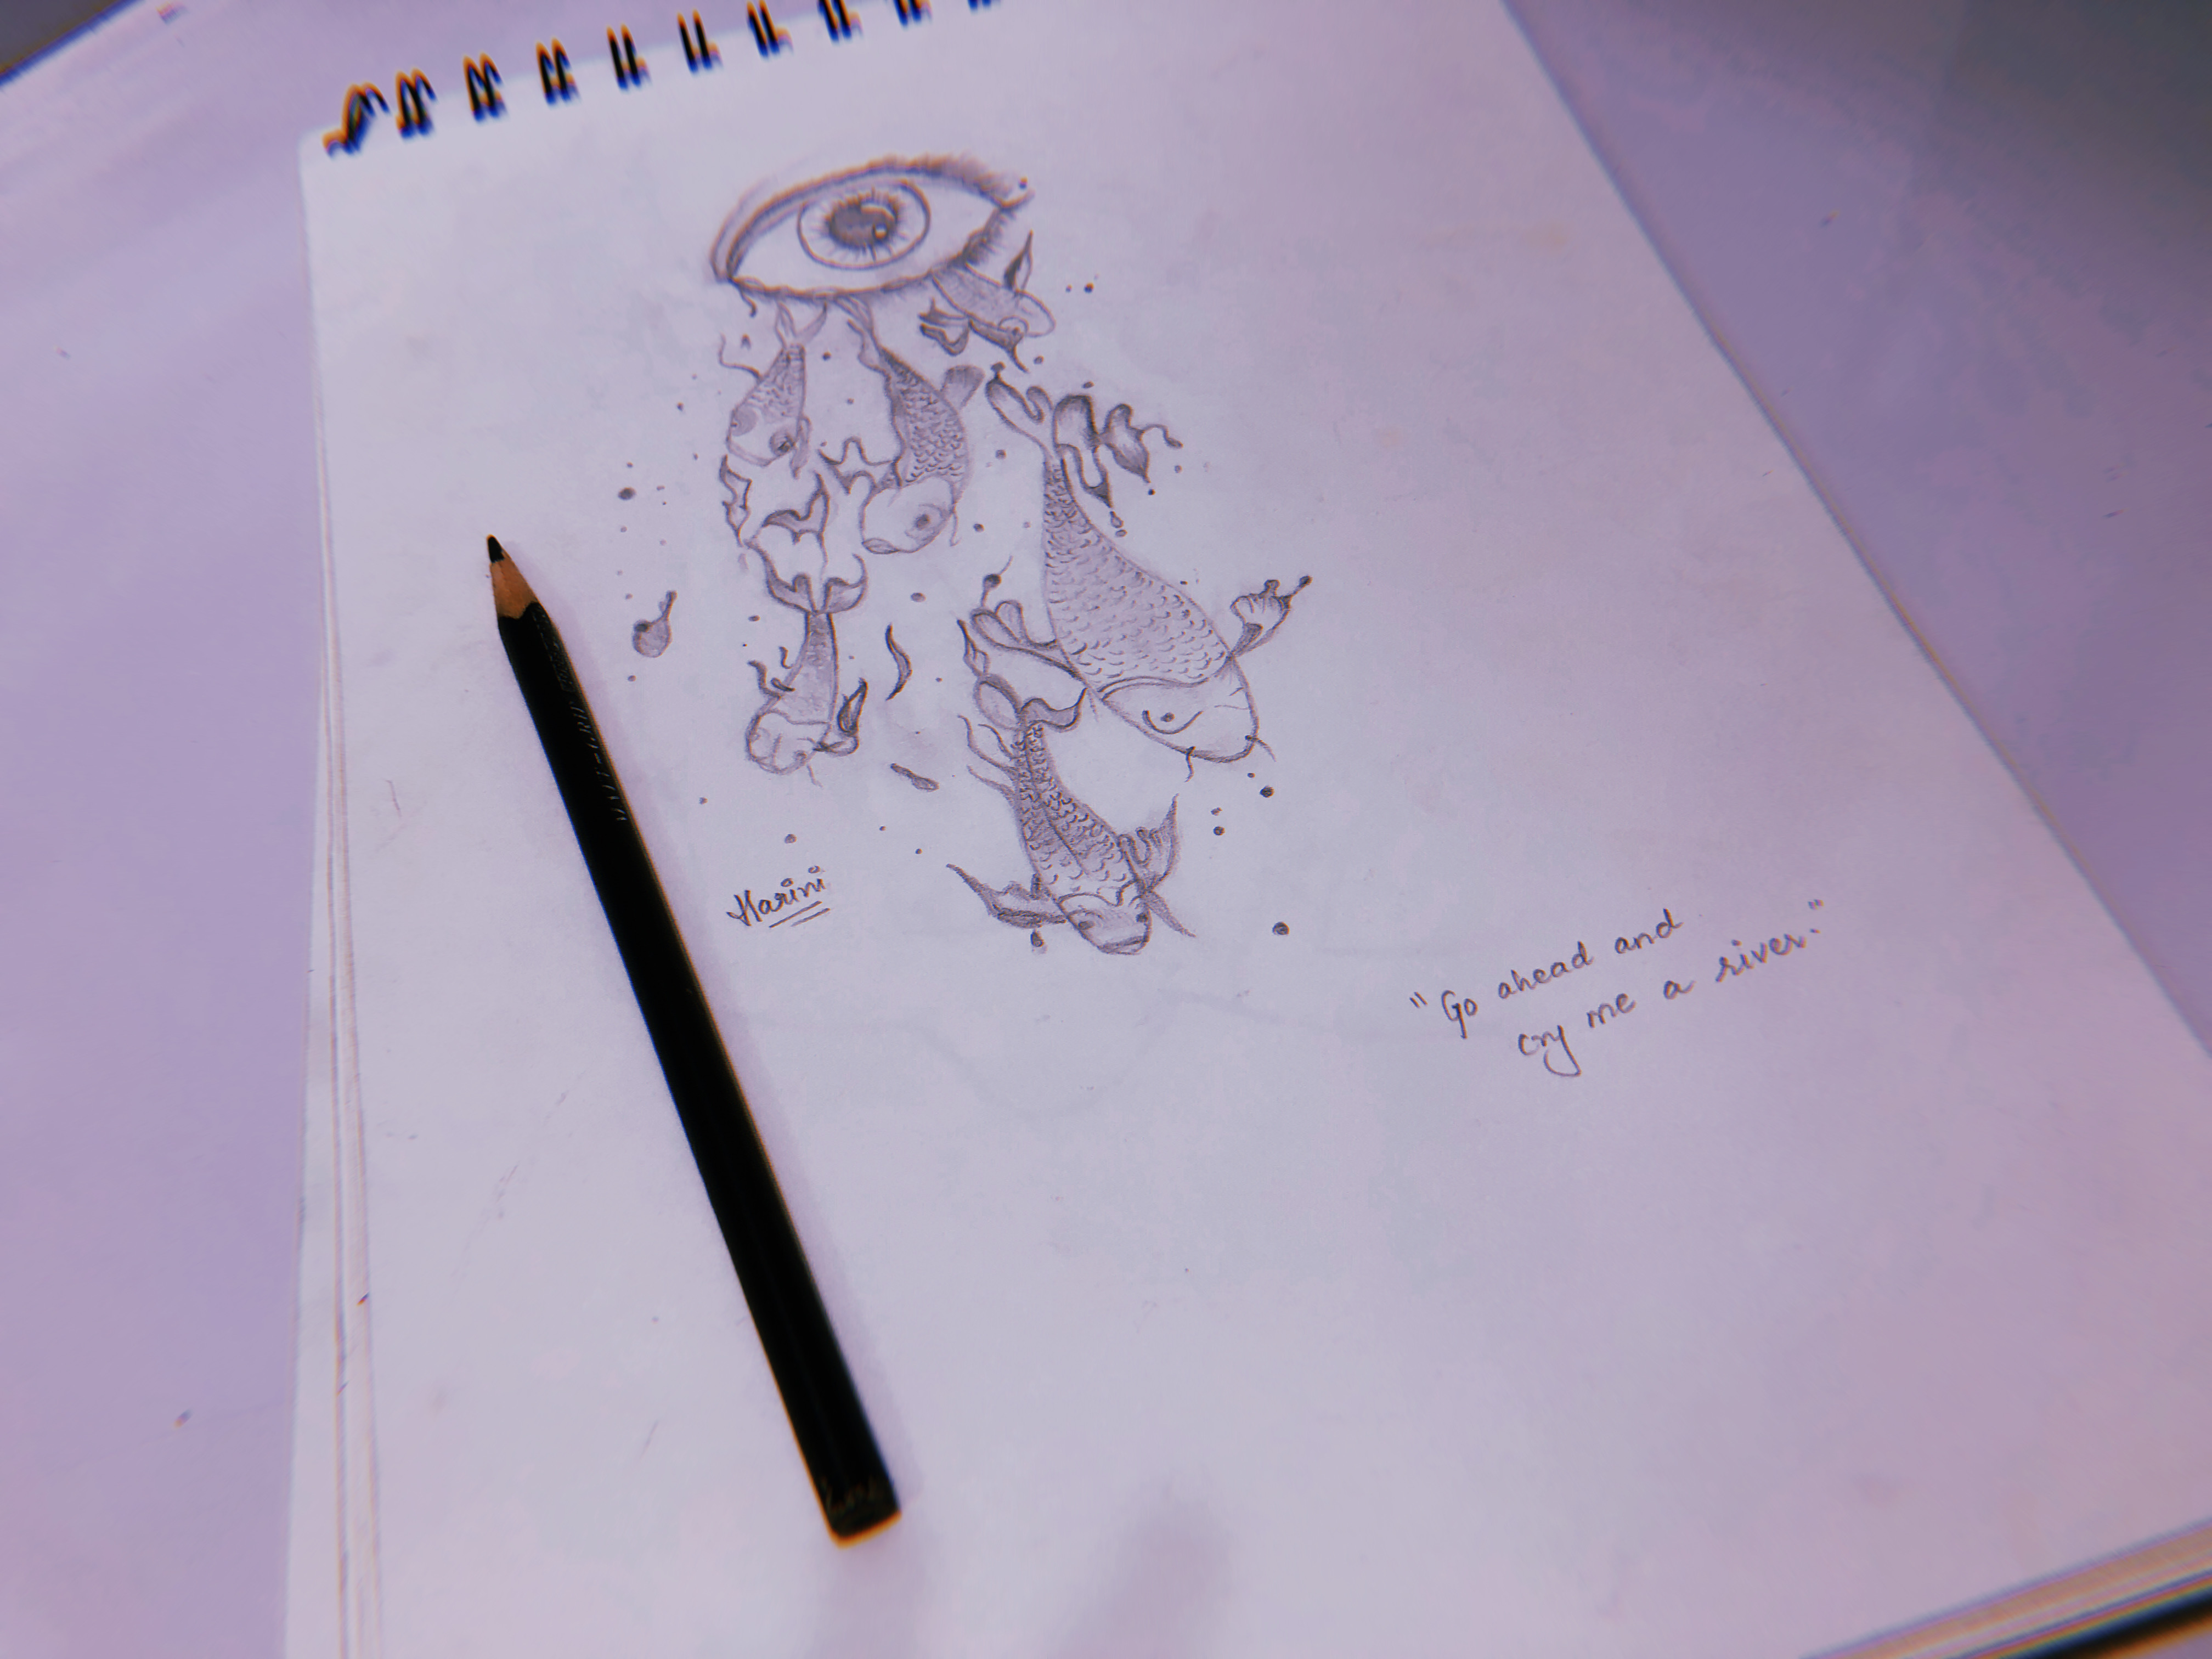 Harini
"Go ahead and
cry me a river."